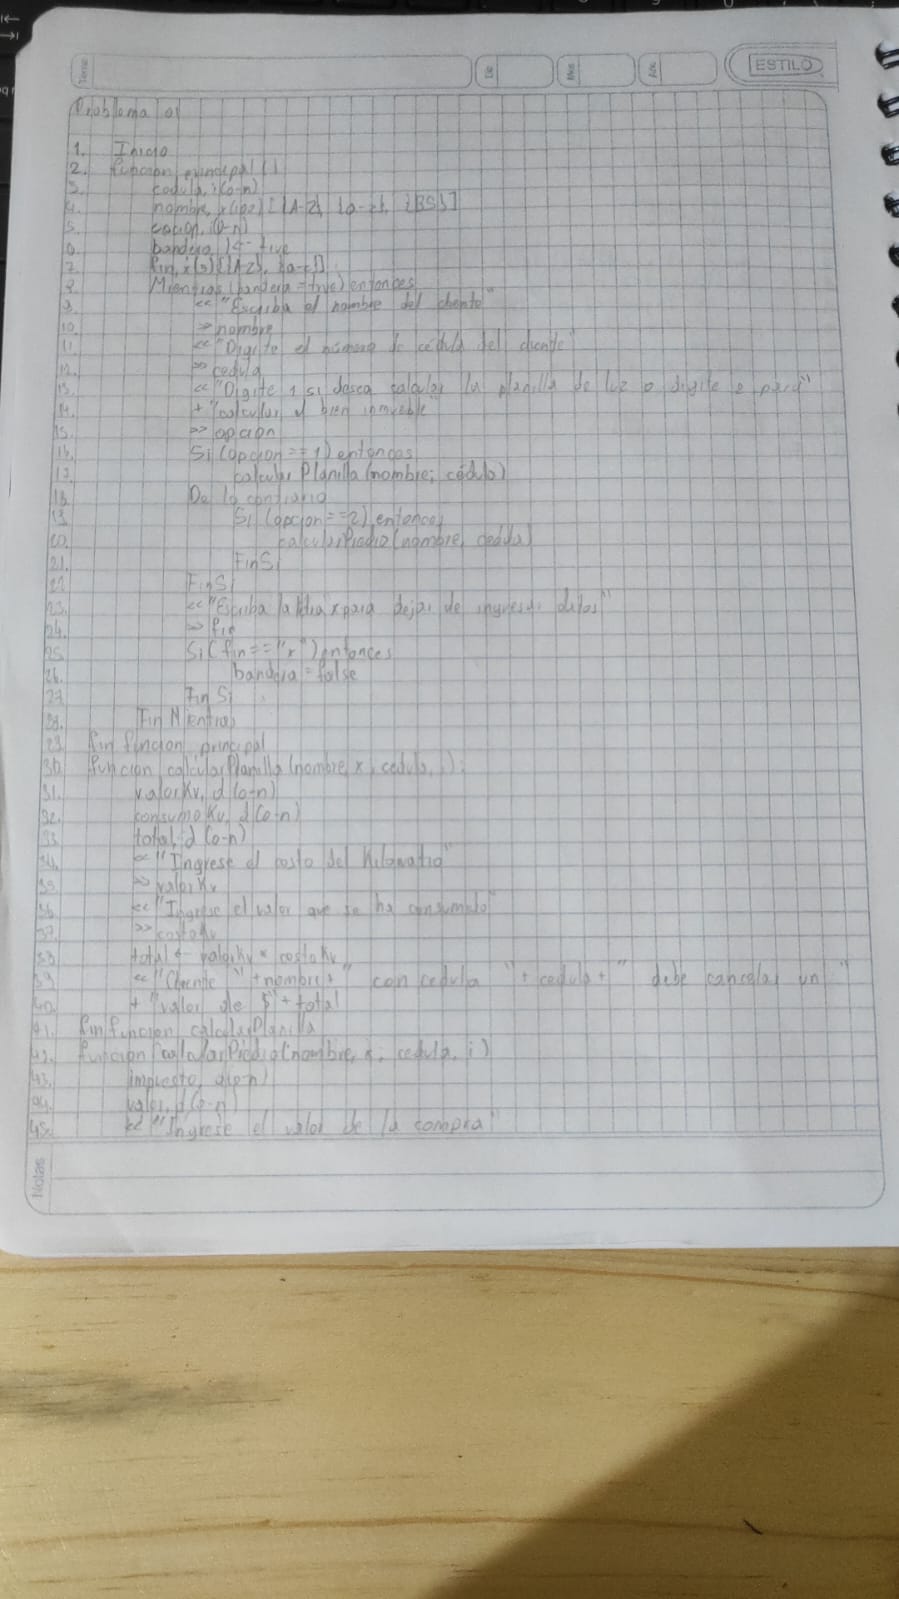 Nombre Día Mes Año ESTILO
Problema 01
1. Inicio
2. funcion principal ( )
3. cedula, i(0-n)
4. nombre, x(102) [{A-Z}, {a-z}, {BS}]
5. opcion, i(0-n)
6. bandera, l ← true
7. fin, x(3) [{A-Z}, {a-z}]
8. Mientras (bandera = true) entonces
9. << "Escriba el nombre del cliente"
10. >> nombre
11. << "Digite el número de cédula del cliente"
12. >> cedula
13. << "Digite 1 si desea calcular la planilla de luz o digite 2 para"
14. + "calcular el bien inmueble"
15. >> opcion
16. Si (opcion == 1) entonces
17. calcular Planilla (nombre; cédula)
18. De lo contrario
19. Si (opcion == 2) entonces
20. calcularPredio (nombre, cedula)
21. FinSi
22. FinSi
23. << "Escriba la letra x para dejar de ingresar datos"
24. >> fin
25. Si (fin == "x") entonces
26. bandera = false
27. Fin Si
28. Fin Mientras
29. fin funcion principal
30. funcion calcularPlanilla (nombre, x; cedula, i);
31. valorKv, d (0-n)
32. consumoKv, d (0-n)
33. total, d (0-n)
34. << "Ingrese el costo del kilowatio"
35. >> valorKv
36. << "Ingrese el valor que se ha consumido"
37. >> costoKv
38. total ← valorKv * costoKv
39. << "Cliente " + nombre + " con cedula " + cedula + " debe cancelar un "
40. + "valor de $" + total
41. fin funcion calcularPlanilla
42. funcion calcularPredio (nombre, x; cedula, i)
43. impuesto, d(0-n)
44. valor, d (0-n)
45. << "Ingrese el valor de la compra"
Notas